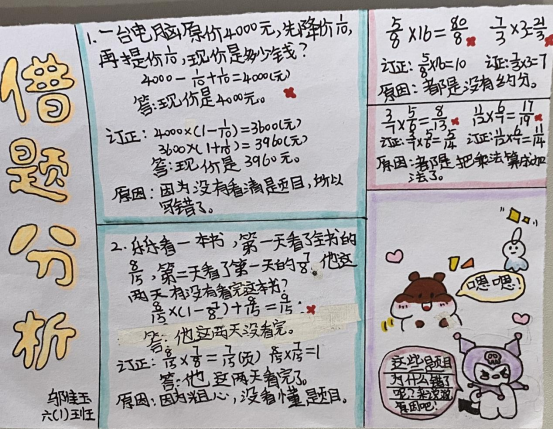 错题分析
邬佳玉
六(1)班
1.一台电脑原价4000元,先降价1/10,
再提价1/10,现价是多少钱?
4000-1/10+1/10=4000(元)
答:现价是4000元。
订正:4000×(1-1/10)=3600(元)
3600×(1+1/10)=3960(元)
答:现价是3960元。
原因:因为没有看清是题目,所以
写错了。
2.乐乐看一本书,第一天看了全书的
8/15,第二天看了第一天的7/8。他这
两天有没有看完这本书?
8/15×(1-7/8)+8/15=9/15
答:他这两天没看完。
答:他这两天看完了。
原因:因为粗心,没看懂是题目。
5/8×16=80/8 7/3×3=21/3
订正:5/8×16=10 订正:7/3×3=7
原因:都是没有约分。
3/7×5/6=8/13 11/12×6/7=17/19
订正:3/7×5/6=5/14 订正:11/12×6/7=11/14
原因:都是把乘法算成加
法了。
嗯嗯!
这些题目
为什么错了
呢?
有因吧!